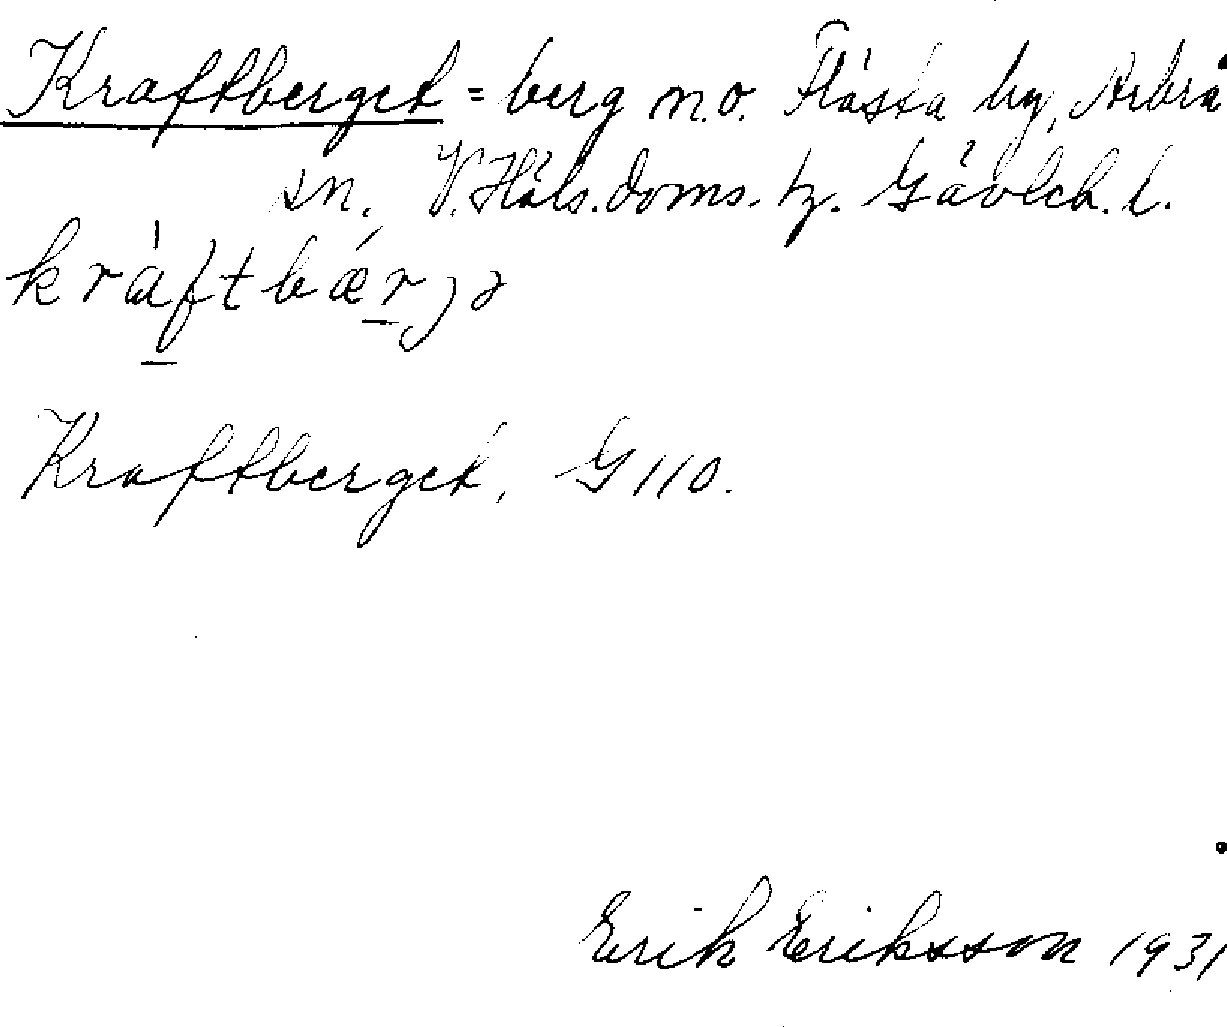 Kraftberget = berg n.o. Flästa by, Arbrå
sn. V. Häls. doms. tz. Gävleb. l.
kràftbǽrjə
Kraftberget, G 110.
Erik Eriksson 1931